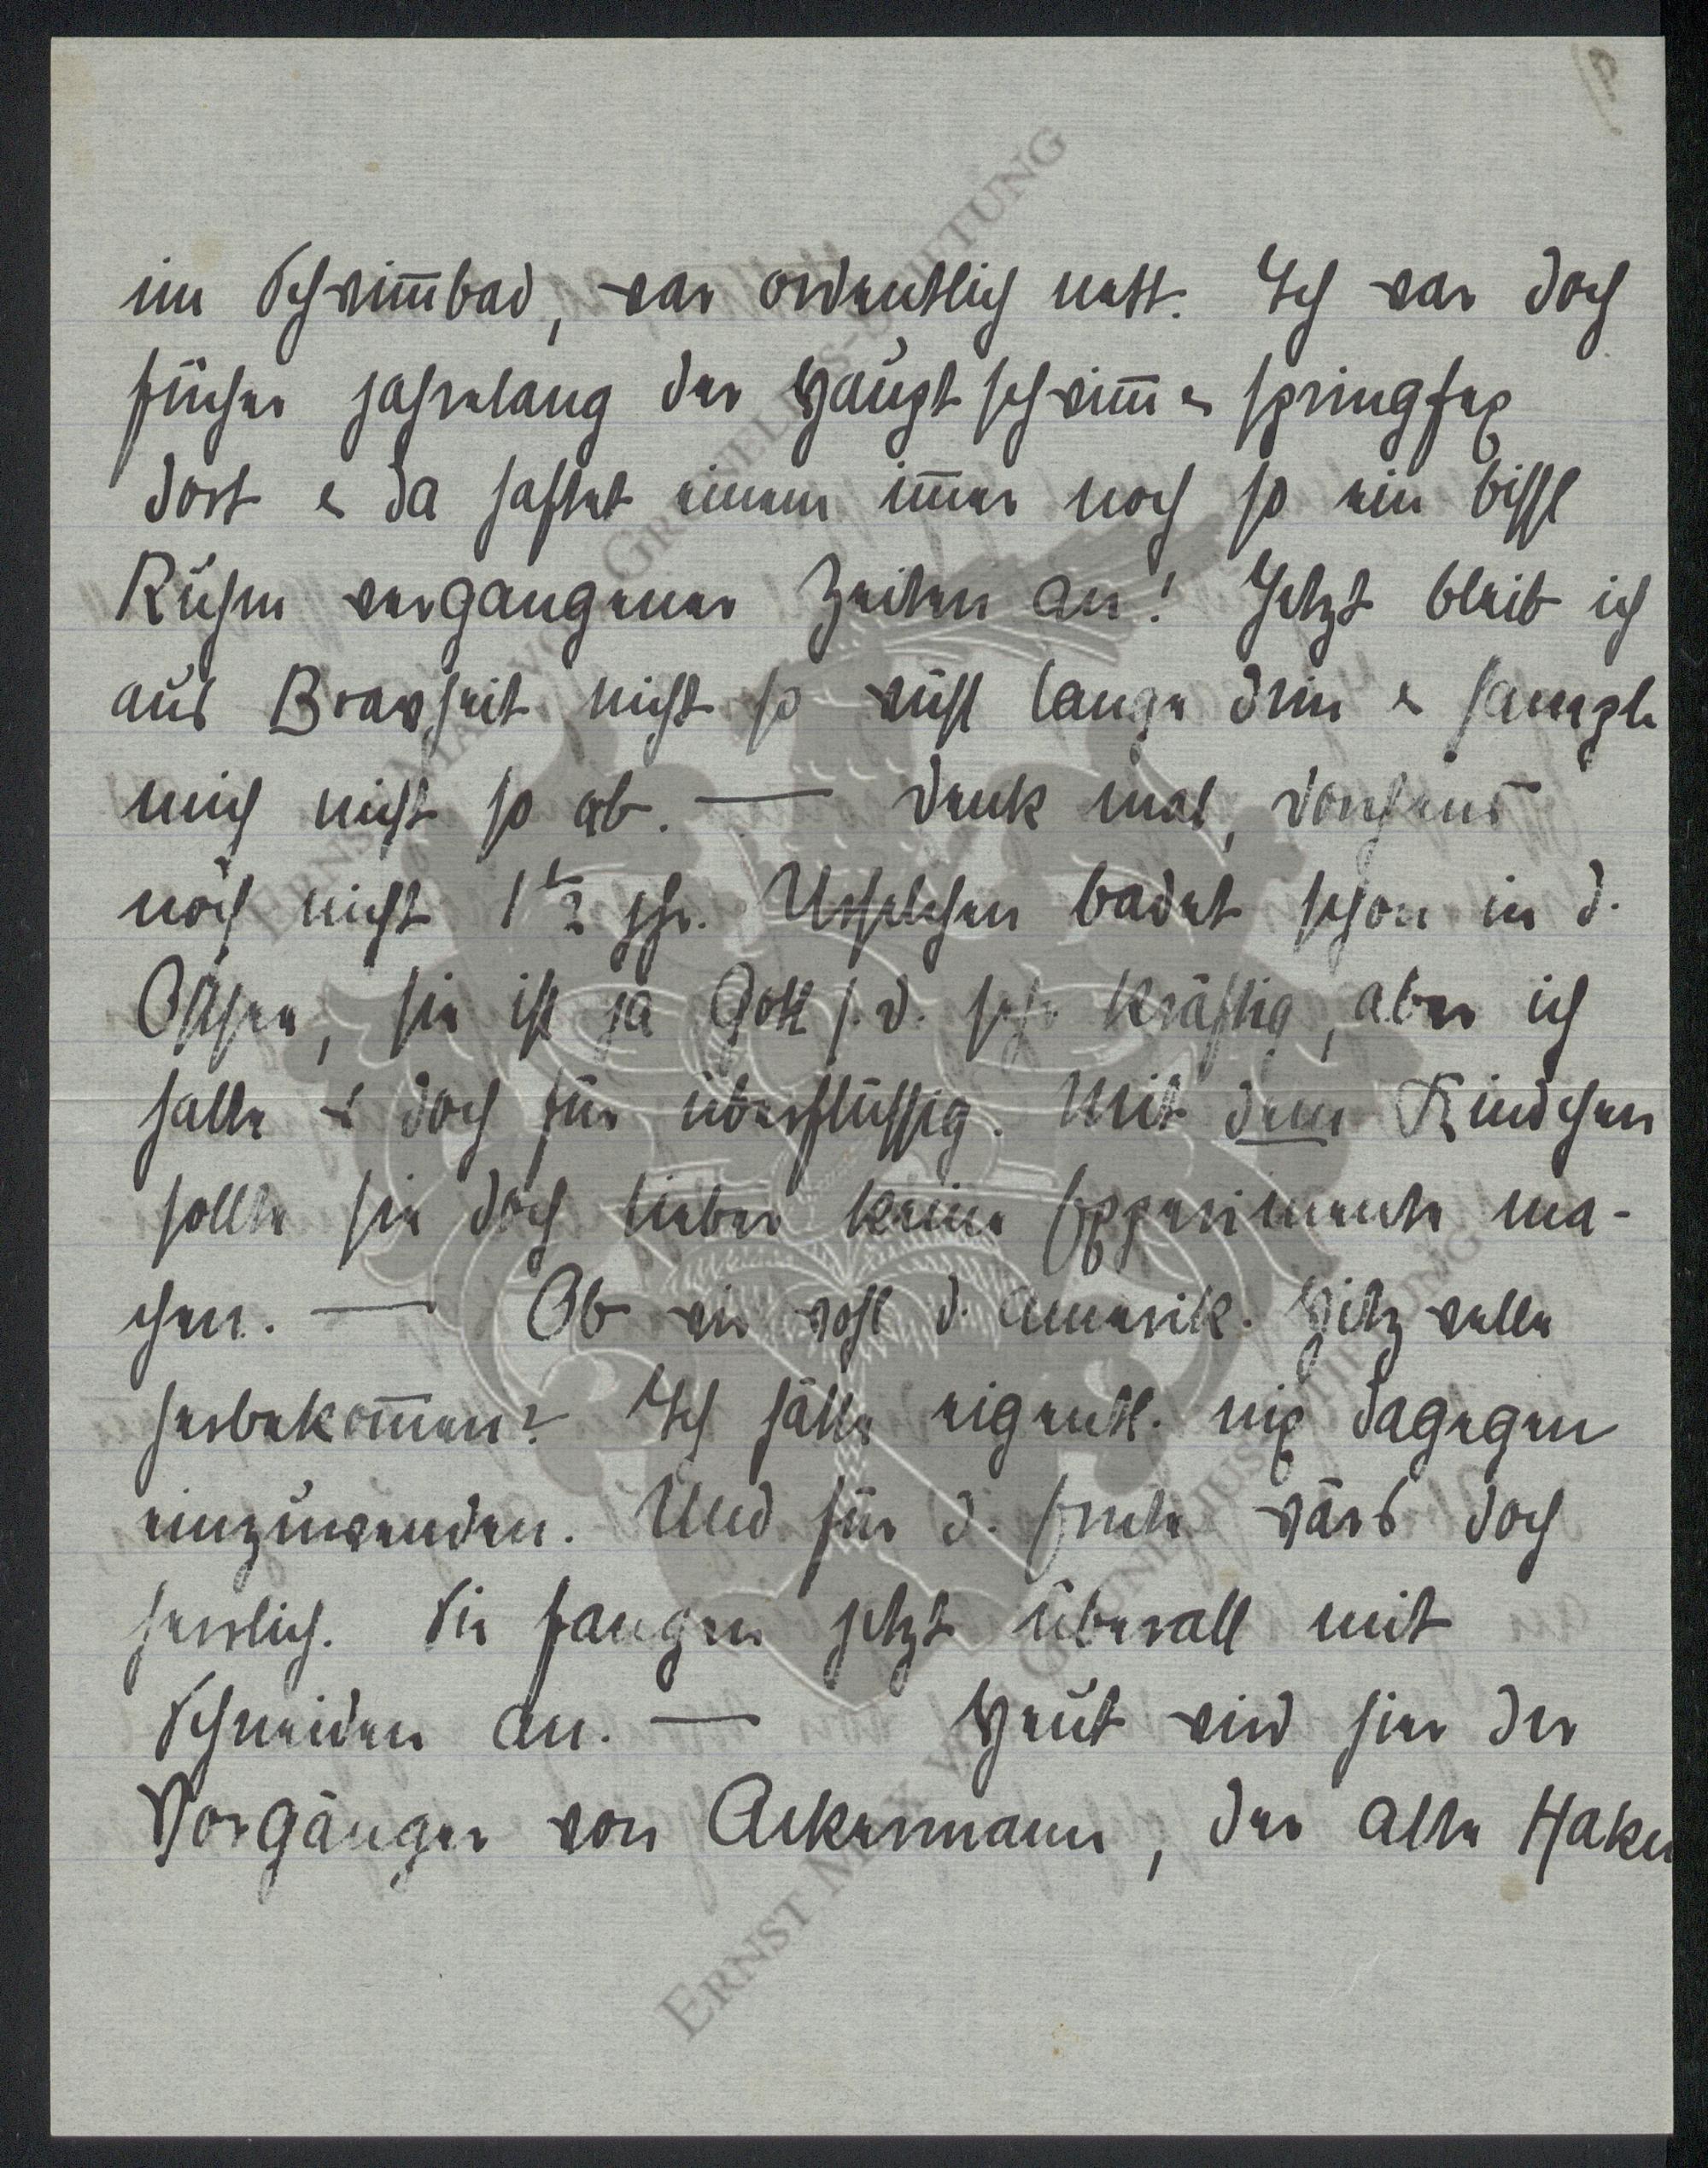 im Schwim̄bad, war ordentlich nett. Ich war doch
früher jahrelang der Hauptschwim̄ & springfex
dort & da haftet einem im̄er noch so ein bissl
Ruhm vergangener Zeiten an! Jetzt bleib ich
aus Bravheit nicht so lange drin & hample
mich nicht so ab. — Denk mal,
noch nicht 1½ jhr. Urselchen badet schon in d.
Ostsee, sie ist ja Gott s. d. sehr kräftig, aber ich
halte es doch für überflüssig. Mit dem Kindchen
sollte sie doch lieber keine Experimente ma-
chen. — Ob wir wohl d. amerik. Hitzwelle
herbekom̄en? Ich hätte eigentl. nix dagegen
einzuwenden. Und für d. Ernte wärs doch
herrlich. Sie fangen jetzt überall mit
Schneiden an. — Heut wird hier der
Vorgänger von Ackermann, der alte Haken
ERNST MAX VON GRUNELIUS-STIFTUNG
ERNST MAX VON GRUNELIUS-STIFTUNG